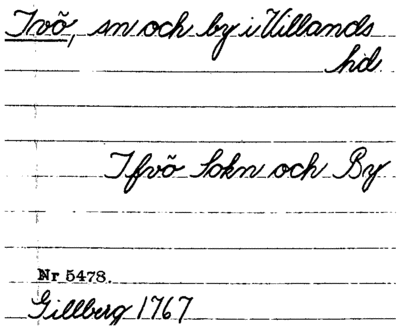 Ivö, sn och by i Villands
hd.
Ifvö Sokn och By
Nr 5478.
Gillberg 1767